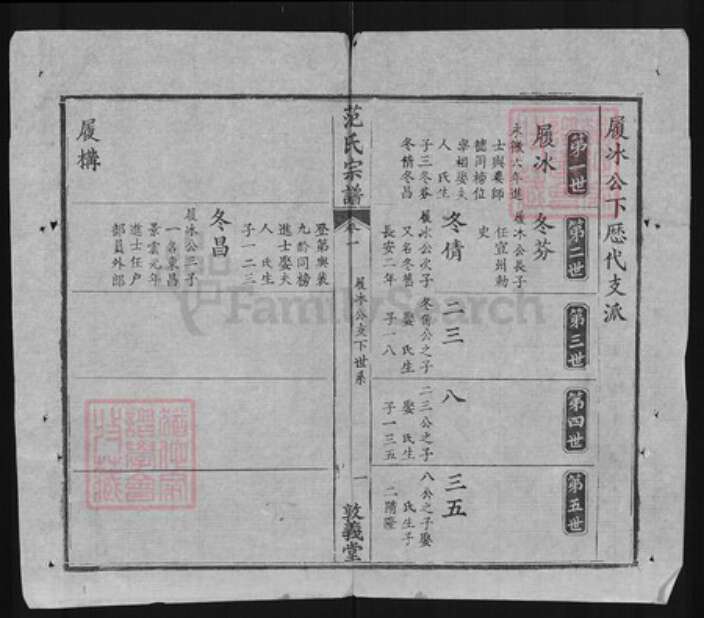 履冰公下歷代支派
第一世
第二世
第三世
第四世
第五世
履冰
永徽六年進
士與婁師
德同榜位
宰相娶夫
人 氏生
子三冬芬
冬倩冬昌
冬芬
履冰公長子
任宣州勅
史
冬倩
履冰公次子
又名冬舊
長安二年
二三
冬倩公之子
娶 氏生
子一八
八
二三公之子
娶 氏生
子一三五
三五
八公之子娶
氏生子
二隋隆
范氏宗譜
卷一
履冰公支下世系
一
敦義堂
登第與裴
九齡同榜
進士娶夫
人 氏生
子一二三
冬昌
履冰公三子
一名東昌
景雲元年
進士任戶
部員外郎
履構
FamilySearch